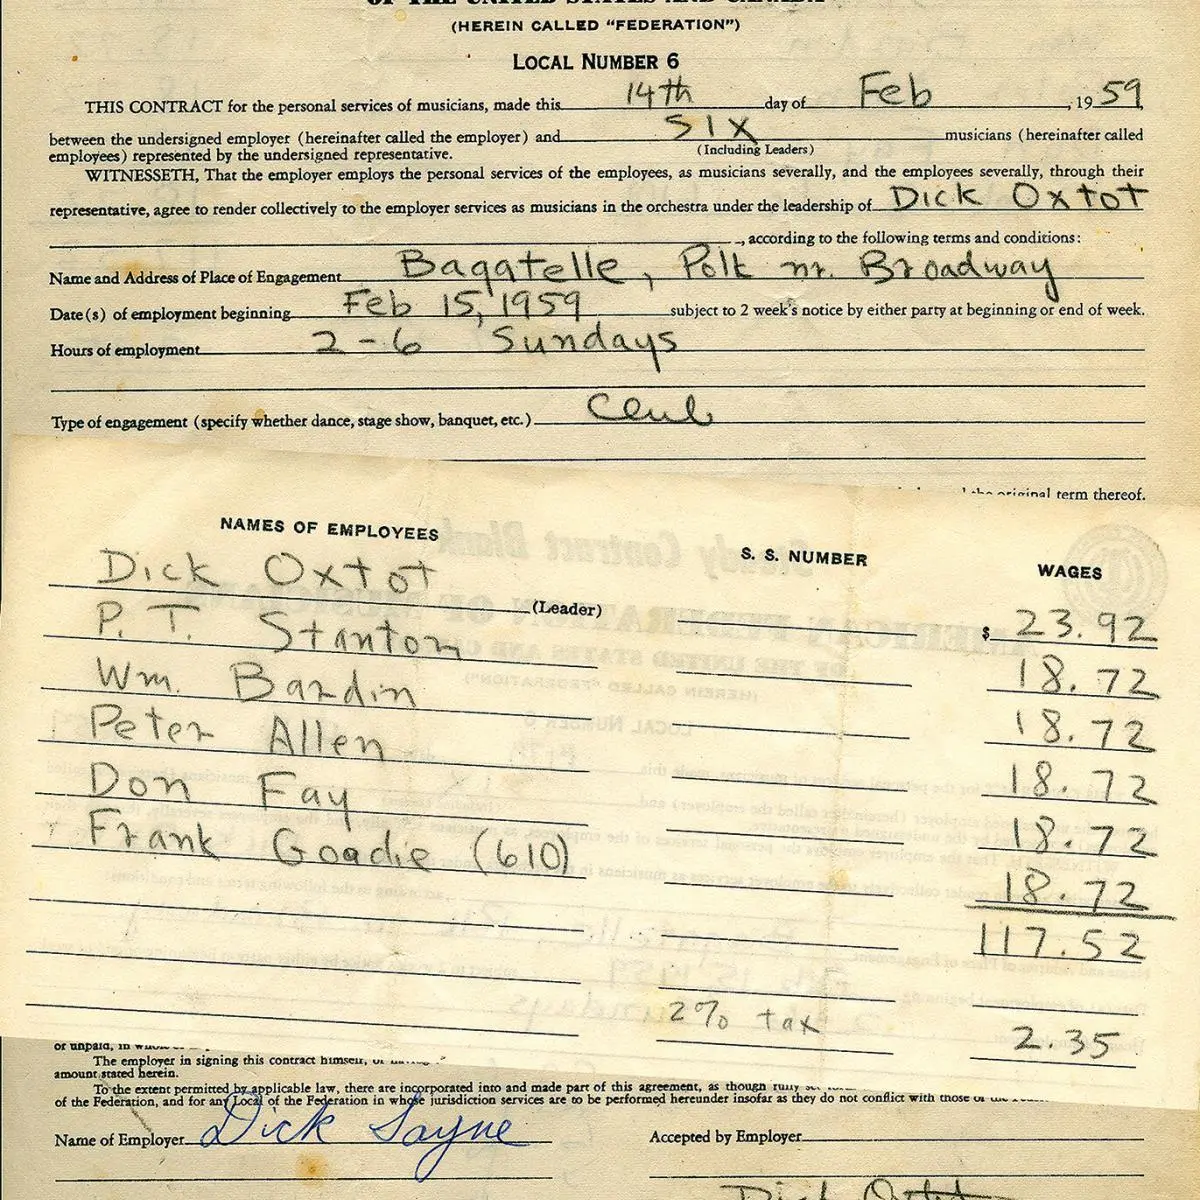 OF THE UNITED STATES AND CANADA
(HEREIN CALLED "FEDERATION")
LOCAL NUMBER 6
THIS CONTRACT for the personal services of musicians, made this 14th day of Feb, 1959
between the undersigned employer (hereinafter called the employer) and SIX musicians (hereinafter called
(Including Leaders)
employees) represented by the undersigned representative.
WITNESSETH, That the employer employs the personal services of the employees, as musicians severally, and the employees severally, through their
representative, agree to render collectively to the employer services as musicians in the orchestra under the leadership of Dick Oxtot
, according to the following terms and conditions:
Name and Address of Place of Engagement Bagatelle, Polk nr. Broadway
Date(s) of employment beginning Feb 15, 1959 subject to 2 week's notice by either party at beginning or end of week.
Hours of employment 2-6 Sundays
Type of engagement (specify whether dance, stage show, banquet, etc.) Club
the original term thereof.
NAMES OF EMPLOYEES S. S. NUMBER WAGES
Dick Oxtot (Leader) $ 23.92
P. T. Stanton 18.72
Wm. Bardin 18.72
Peter Allen 18.72
Don Fay 18.72
Frank Goadie (610) 18.72
117.52
2% tax 2.35
or unpaid, in
The employer in signing this contract himself,
amount stated herein.
To the extent permitted by applicable law, there are incorporated into and made part of this agreement, as though fully
of the Federation, and for any Local of the Federation in whose jurisdiction services are to be performed hereunder insofar as they do not conflict with those
Name of Employer Dick Sayne Accepted by Employer
Dick Oxtot